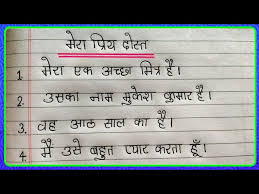 मेरा प्रिय दोस्त
1. मेरा एक अच्छा मित्र है।
2. उसका नाम मुकेश कुमार है।
3. वह आठ साल का है।
4. मैं उसे बहुत प्यार करता हूँ।